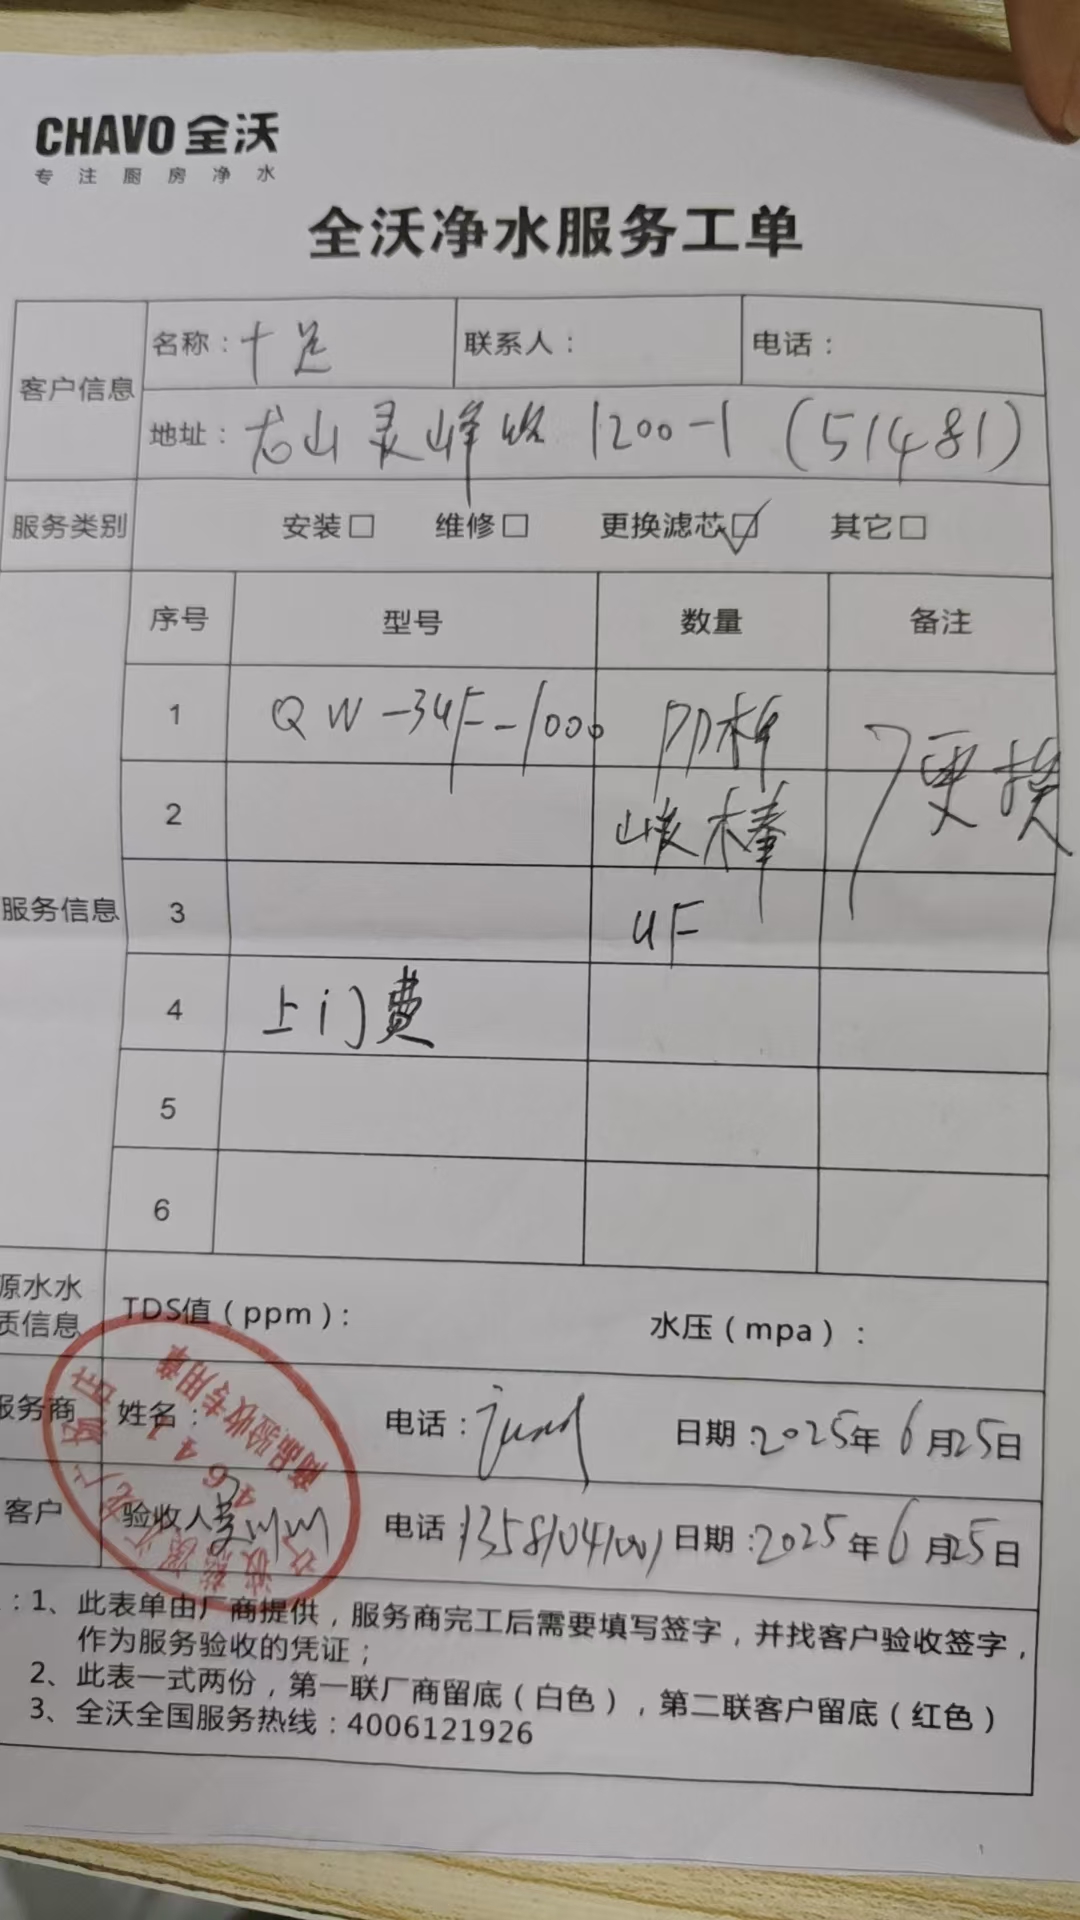 CHAVO 全沃
专注厨房净水
全沃净水服务工单
客户信息 名称：十足 联系人： 电话：
地址：龙山灵峰路1200-1（51481）
服务类别 安装□ 维修□ 更换滤芯☑ 其它□
服务信息 序号 型号 数量 备注
1 QW-34F-1000 PP棉 更换
2 碳棒
3 UF
4 上门费
5
6
源水水质信息 TDS值（ppm）： 水压（mpa）：
服务商 姓名： 电话： 日期：2025年6月25日
客户 验收人 电话：13581041001 日期：2025年6月25日
商品验收专用章
：1、此表单由厂商提供，服务商完工后需要填写签字，并找客户验收签字，
作为服务验收的凭证；
2、此表一式两份，第一联厂商留底（白色），第二联客户留底（红色）
3、全沃全国服务热线：4006121926